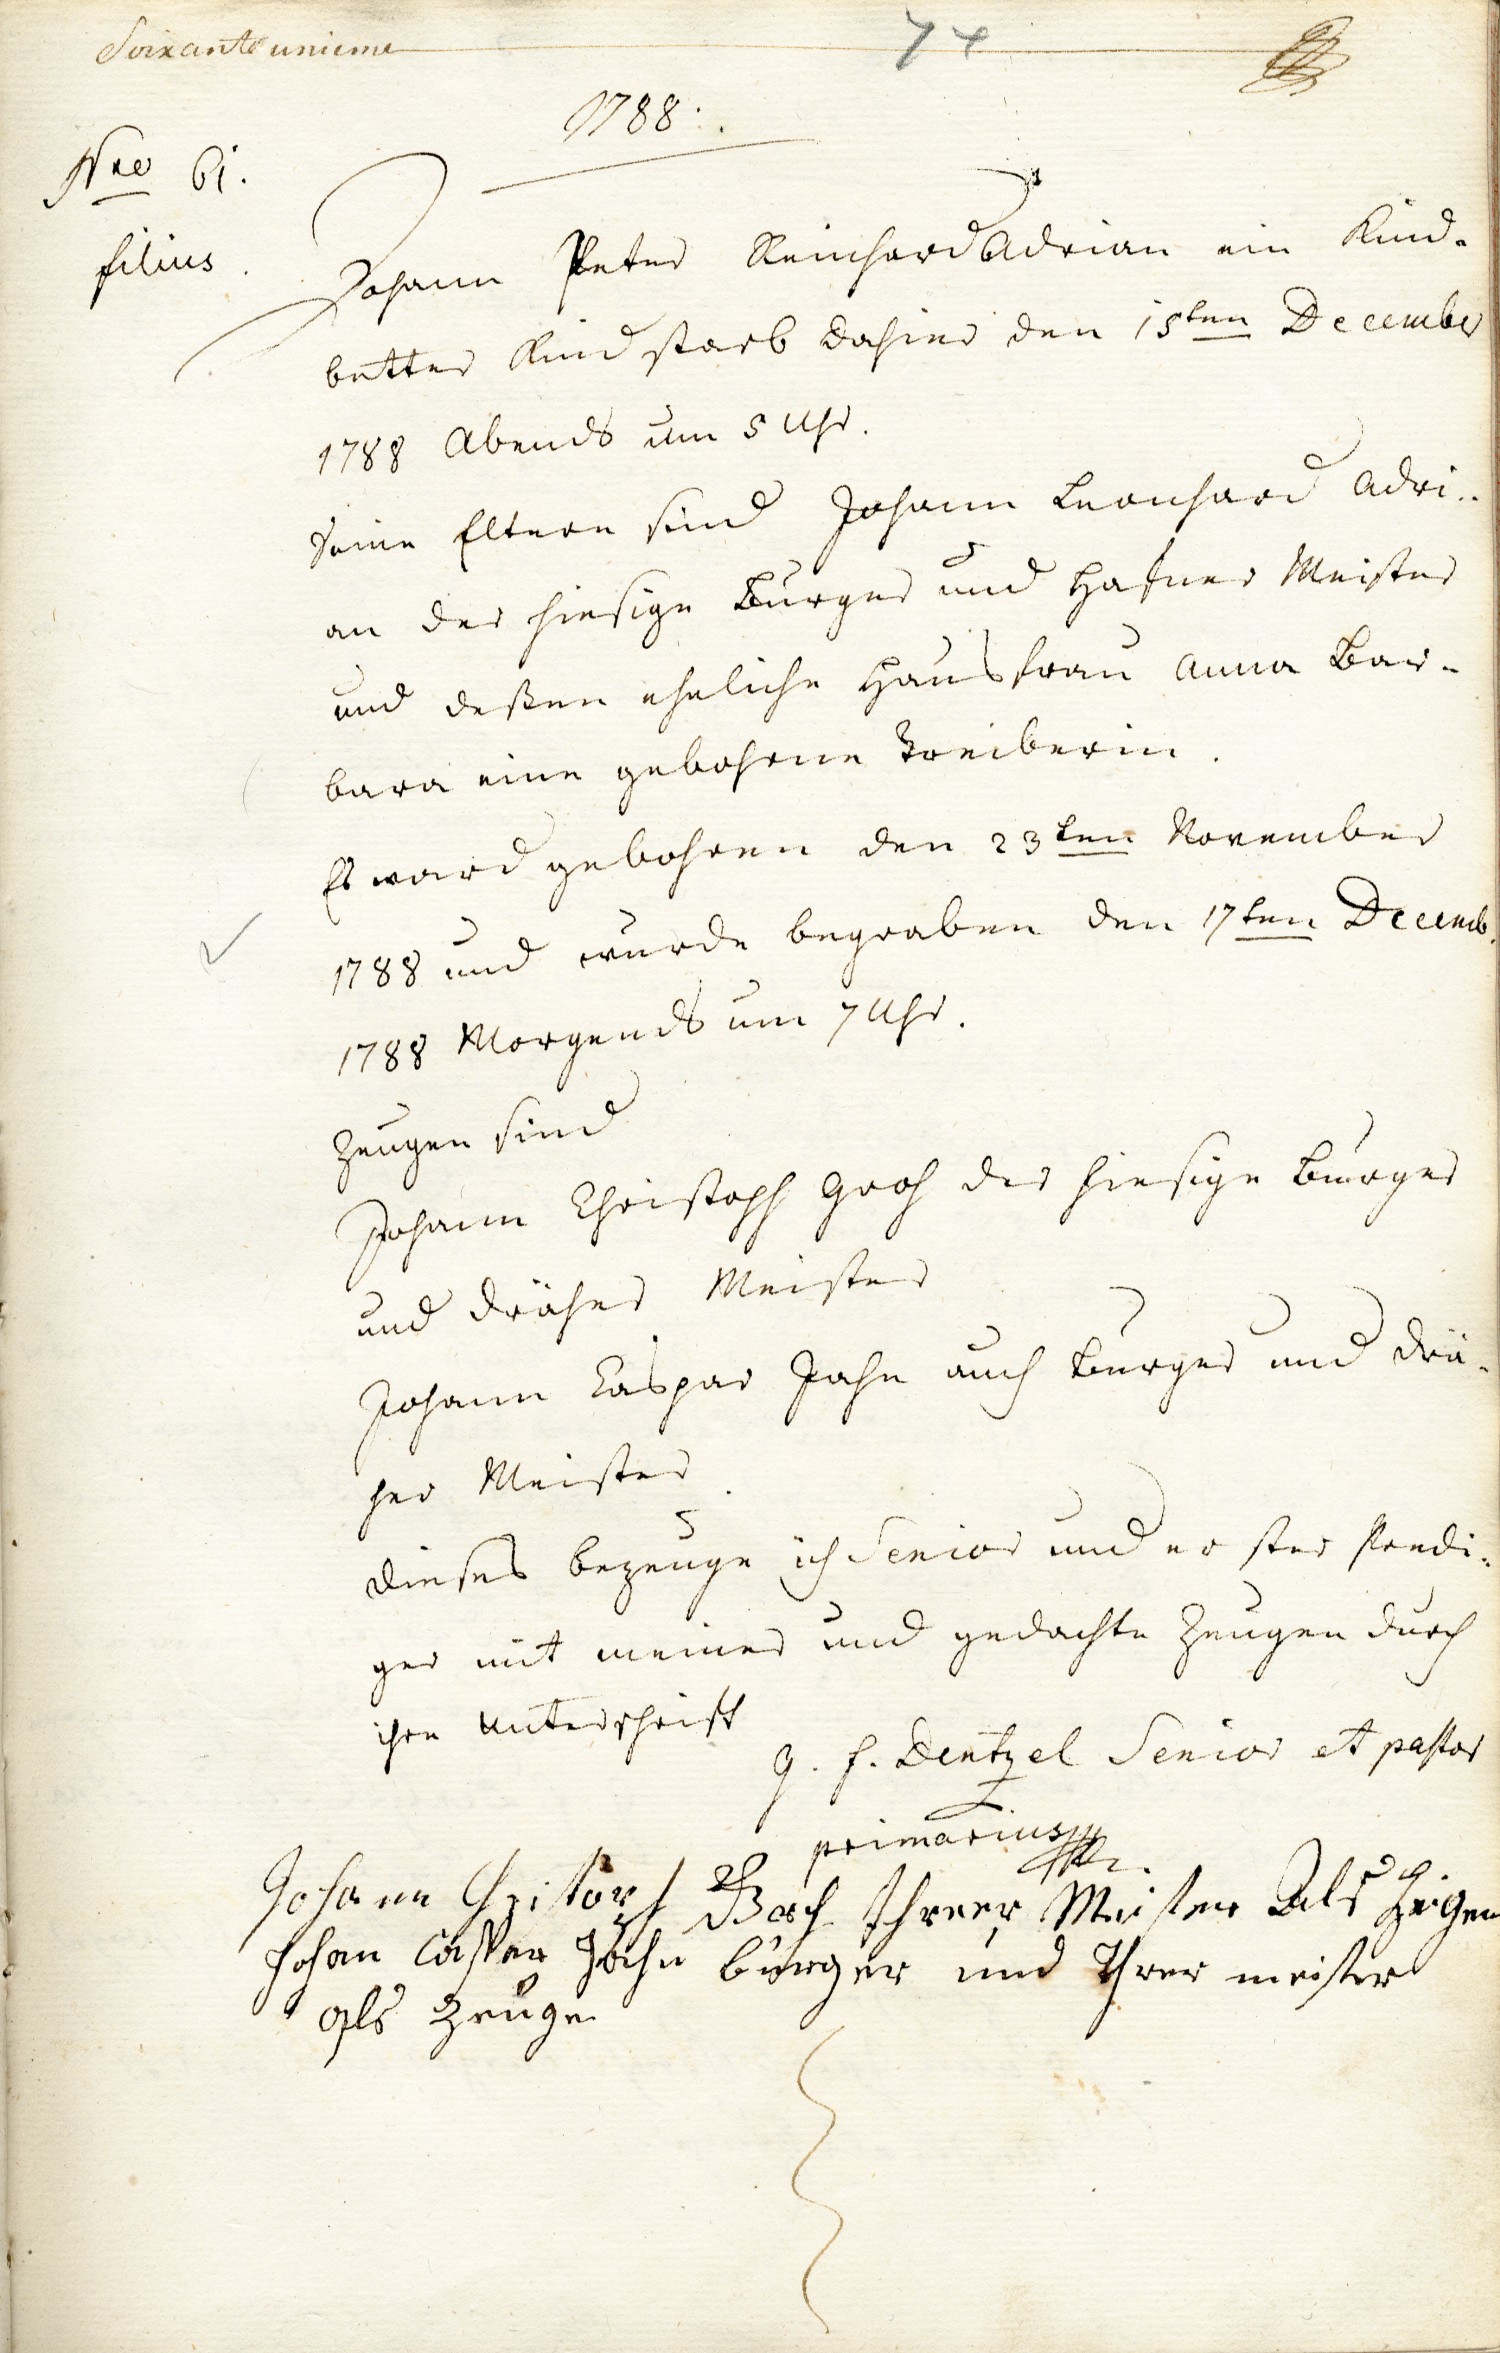 Soixante unieme
74
1788.
Nro 61.
filius.
Johann Peter Reinhard Adrian ein Kind-
better Kind starb dahier den 15ten December
1788 Abends um 5 Uhr.
Seine Eltern sind Johann Leonhard Adri-
an der hiesige Burger und Hafner Meister
und deßen eheliche Hausfrau Anna Bar-
bara eine gebohrne Treiberin.
Es ward gebohren den 23ten November
1788 und wurde begraben den 17ten Decemb.
1788 Morgends um 7 Uhr.
Zeugen sind
Johann Christoph Groh der hiesige Burger
und Dräher Meister
Johann Caspar Jahn auch Burger und Drä-
her Meister.
Dieses bezeuge ich Senior und erster Predi-
ger mit meiner und gedachte Zeugen durch
ihre Unterschrift
G. F. Dentzel Senior et pastor
primarius
Johann Meister Als
Johan Casper Jahn burger und Threr meister
Als Zeuge